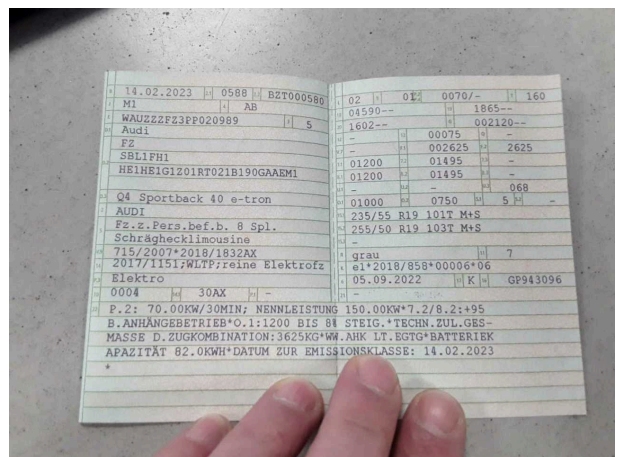 14.02.2023 0588 BZT000580
M1 AB
WAUZZZFZ3PP020989 5
Audi
FZ
SBL1FH1
HE1HE1G1Z01RT021B190GAAEM1
Q4 Sportback 40 e-tron
AUDI
Fz.z.Pers.bef.b. 8 Spl.
Schräghecklimousine
715/2007*2018/1832AX
2017/1151;WLTP;reine Elektrofz
Elektro
0004 30AX -
02 01 0070/- 160
04590-- 1865--
1602-- 002120--
- 00075 -
- 002625 2625
01200 01495 -
01200 01495 -
- - 068
01000 0750 5 -
235/55 R19 101T M+S
255/50 R19 103T M+S
-
grau 7
e1*2018/858*00006*06
05.09.2022 K GP943096
-
P.2: 70.00KW/30MIN; NENNLEISTUNG 150.00KW*7.2/8.2:+95
B.ANHÄNGEBETRIEB*O.1:1200 BIS 8% STEIG.*TECHN.ZUL.GES-
MASSE D.ZUGKOMBINATION:3625KG*WW.AHK LT.EGTG*BATTERIEK
APAZITÄT 82.0KWH*DATUM ZUR EMISSIONSKLASSE: 14.02.2023
*